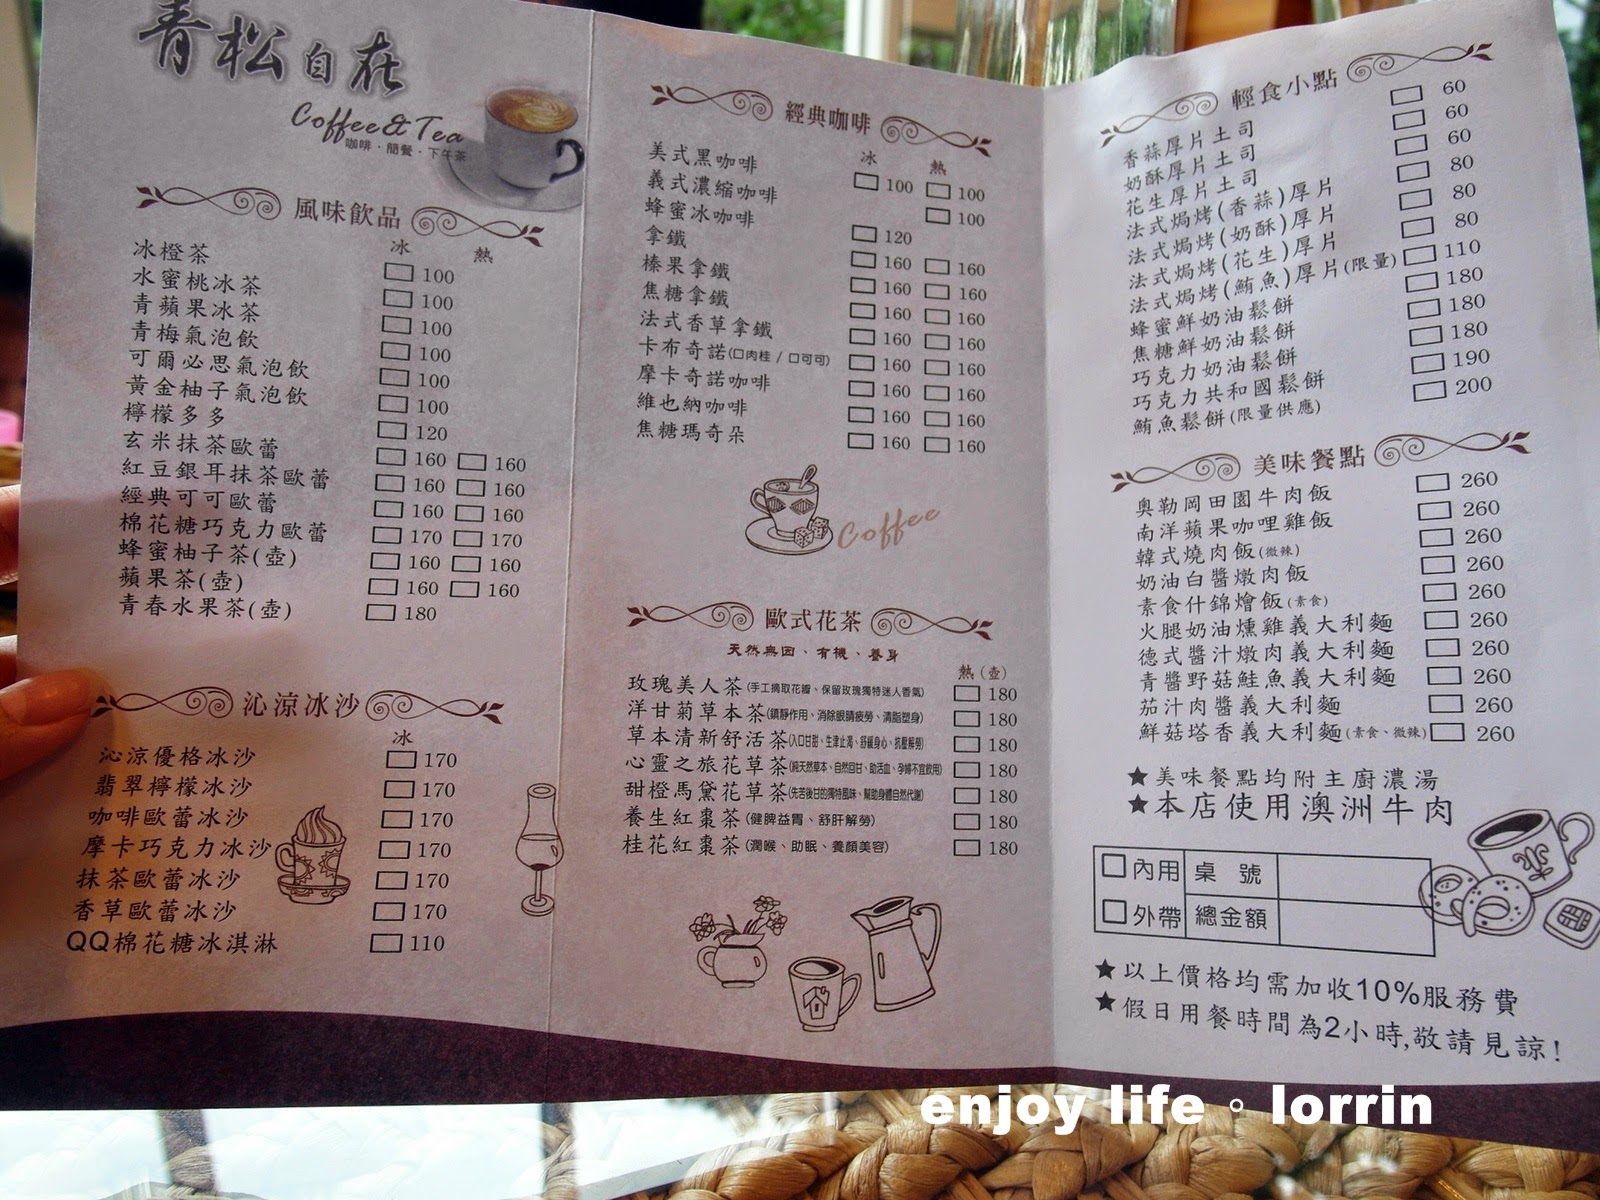 青松自在
Coffee&Tea
咖啡·簡餐·下午茶
風味飲品
冰 熱
冰橙茶 100
水蜜桃冰茶 100
青蘋果冰茶 100
青梅氣泡飲 100
可爾必思氣泡飲 100
黃金柚子氣泡飲 100
檸檬多多 120
玄米抹茶歐蕾 160 160
紅豆銀耳抹茶歐蕾 160 160
經典可可歐蕾 160 160
棉花糖巧克力歐蕾 170 170
蜂蜜柚子茶(壺) 160 160
蘋果茶(壺) 160 160
青春水果茶(壺) 180
沁涼冰沙
冰
沁涼優格冰沙 170
翡翠檸檬冰沙 170
咖啡歐蕾冰沙 170
摩卡巧克力冰沙 170
抹茶歐蕾冰沙 170
香草歐蕾冰沙 170
QQ棉花糖冰淇淋 110
經典咖啡
冰 熱
美式黑咖啡 100 100
義式濃縮咖啡 100
蜂蜜冰咖啡 120
拿鐵 160 160
榛果拿鐵 160 160
焦糖拿鐵 160 160
法式香草拿鐵 160 160
卡布奇諾(口肉桂 / 口可可) 160 160
摩卡奇諾咖啡 160 160
維也納咖啡 160 160
焦糖瑪奇朵 160 160
Coffee
歐式花茶
天然無因、有機、養身
熱(壺)
玫瑰美人茶(手工摘取花瓣、保留玫瑰獨特迷人香氣) 180
洋甘菊草本茶(鎮靜作用、消除眼睛疲勞、清脂塑身) 180
草本清新舒活茶(入口甘甜、生津止渴、舒緩身心、抗壓解勞) 180
心靈之旅花草茶(純天然草本、自然回甘、助活血、孕婦不宜飲用) 180
甜橙馬黛花草茶(先苦後甘的獨特風味、幫助身體自然代謝) 180
養生紅棗茶(健脾益胃、舒肝解勞) 180
桂花紅棗茶(潤喉、助眠、養顏美容) 180
輕食小點
香蒜厚片土司 60
奶酥厚片土司 60
花生厚片土司 60
法式焗烤(香蒜)厚片 80
法式焗烤(奶酥)厚片 80
法式焗烤(花生)厚片 80
法式焗烤(鮪魚)厚片(限量) 110
蜂蜜鮮奶油鬆餅 180
焦糖鮮奶油鬆餅 180
巧克力奶油鬆餅 180
巧克力共和國鬆餅 190
鮪魚鬆餅(限量供應) 200
美味餐點
奧勒岡田園牛肉飯 260
南洋蘋果咖哩雞飯 260
韓式燒肉飯(微辣) 260
奶油白醬燉肉飯 260
素食什錦燴飯(素食) 260
火腿奶油燻雞義大利麵 260
德式醬汁燉肉義大利麵 260
青醬野菇鮭魚義大利麵 260
茄汁肉醬義大利麵 260
鮮菇塔香義大利麵(素食、微辣) 260
★美味餐點均附主廚濃湯
★本店使用澳洲牛肉
內用 桌 號
外帶 總金額
★以上價格均需加收10%服務費
★假日用餐時間為2小時,敬請見諒!
enjoy life。lorrin